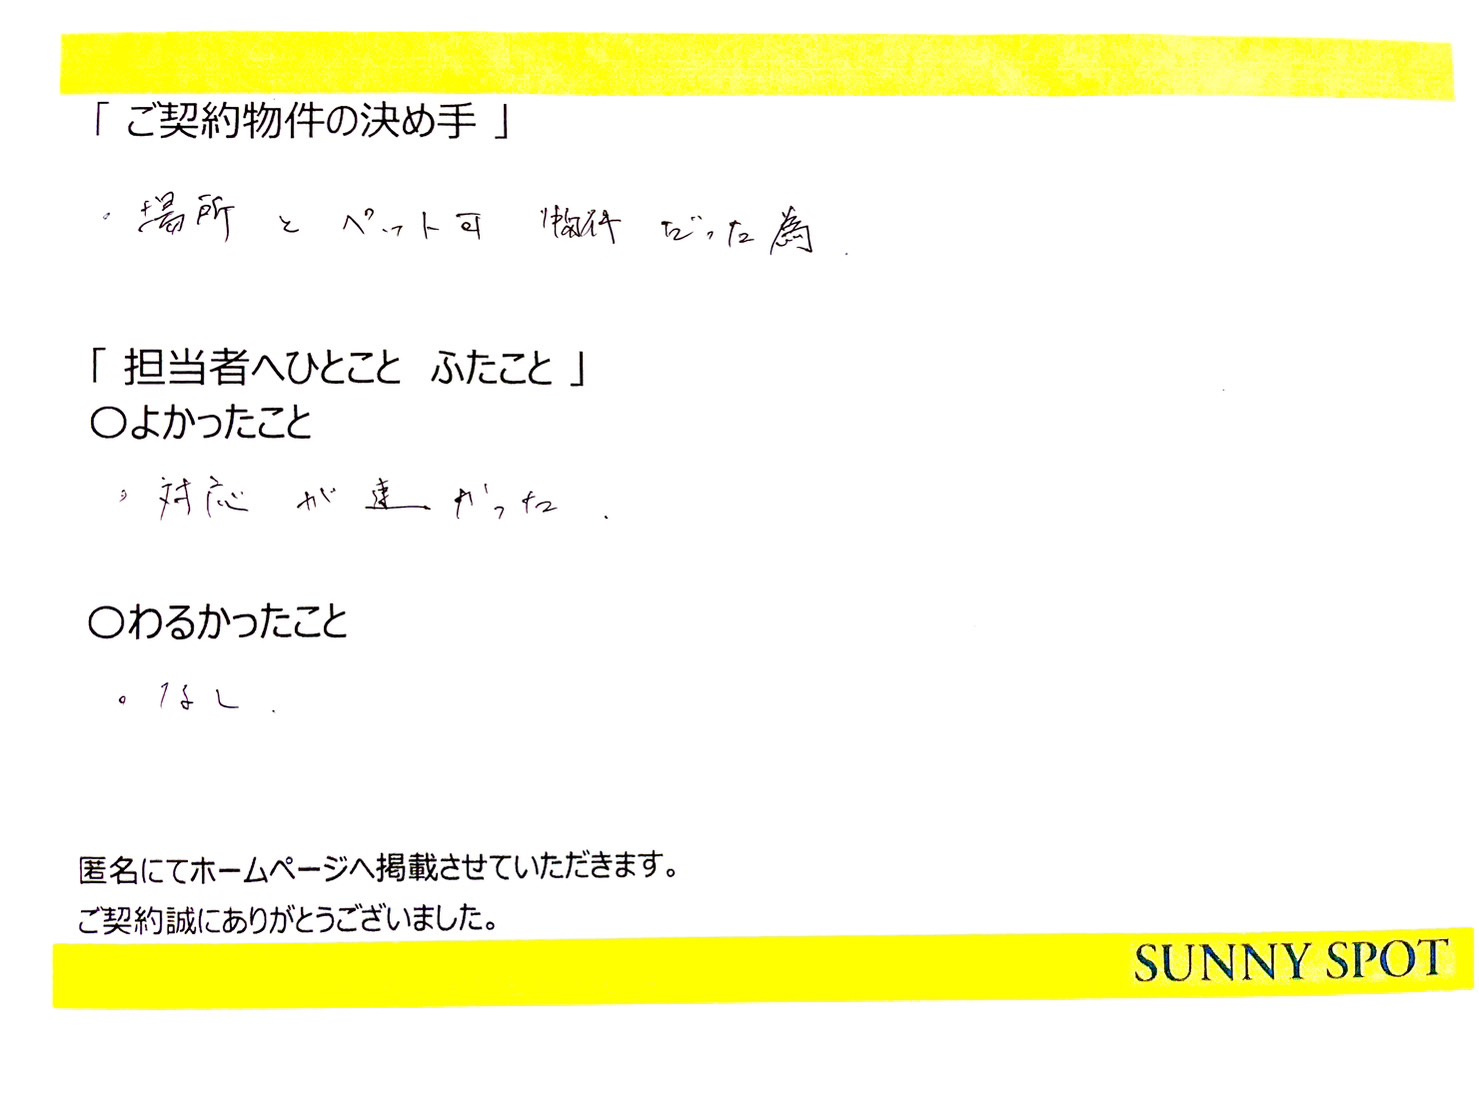 「 ご契約物件の決め手 」
・場所 と ペット可 物件 だった為.
「 担当者へひとこと　ふたこと 」
〇よかったこと
・対応 が 速かった.
〇わるかったこと
・なし.
匿名にてホームページへ掲載させていただきます。
ご契約誠にありがとうございました。
SUNNY SPOT